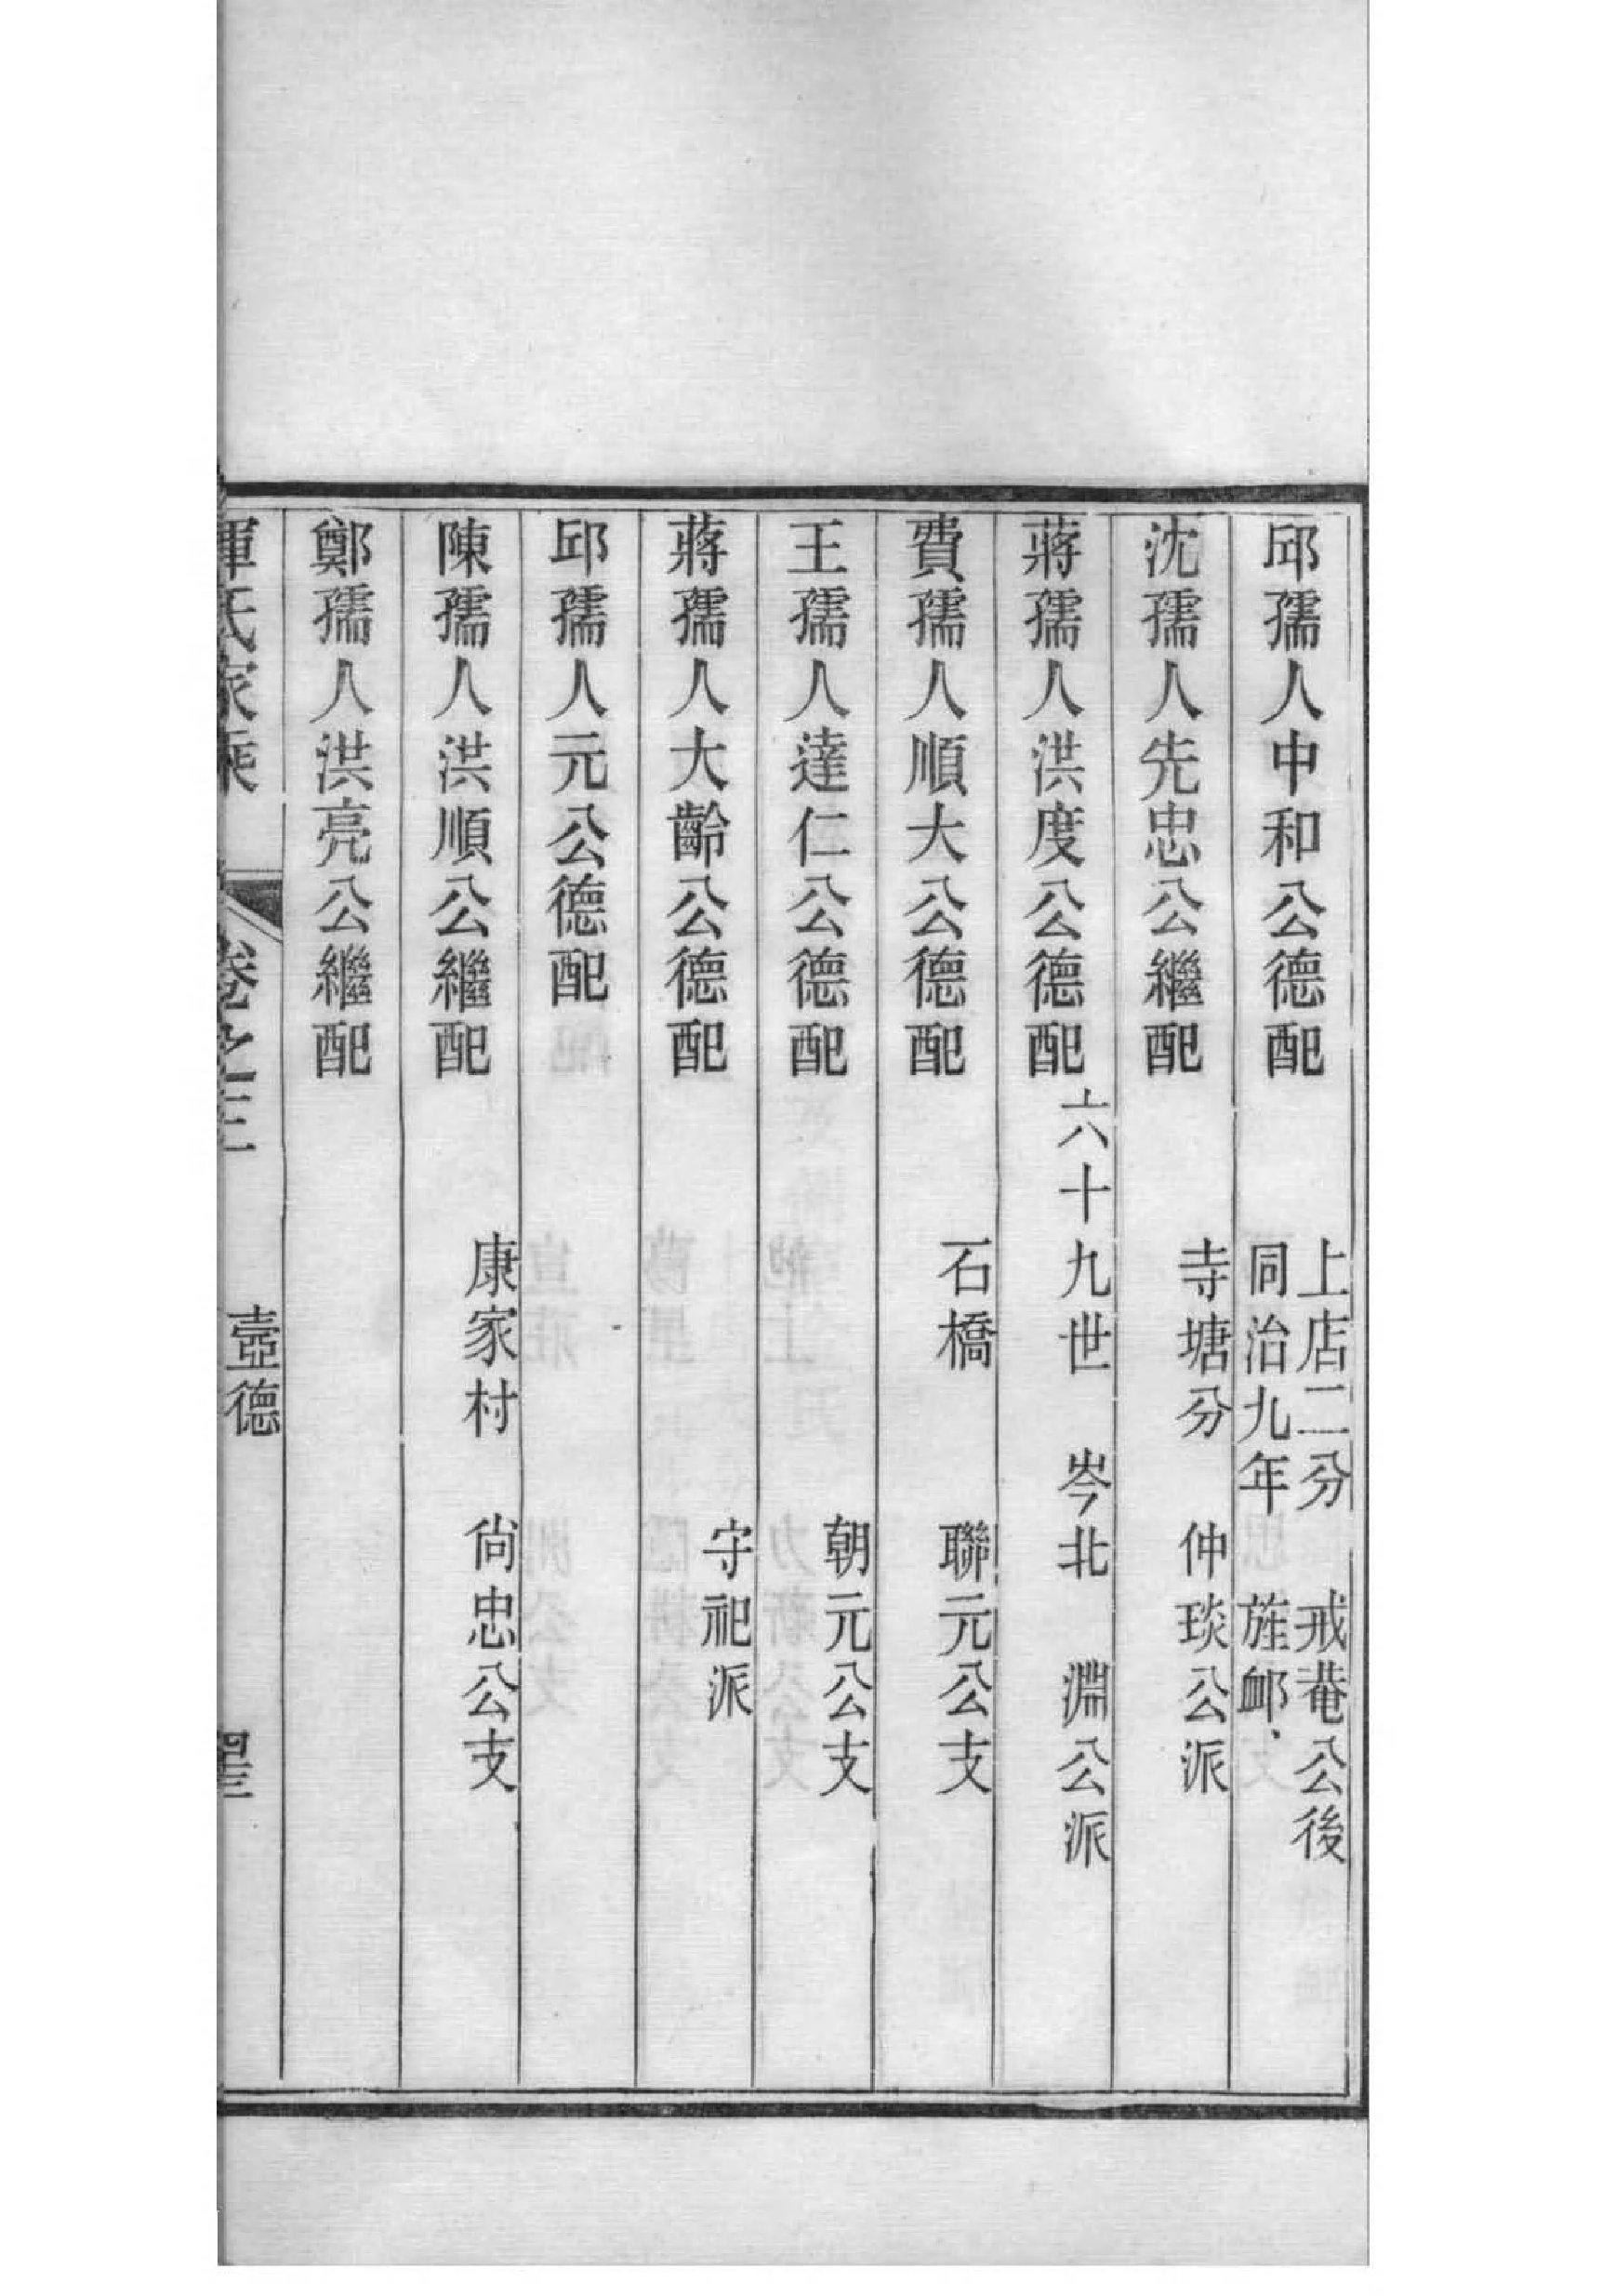 邱孺人中和公德配
上店二分　戒菴公後
同治九年　旌卹
沈孺人先忠公繼配　寺塘分　仲琰公派
蔣孺人洪度公德配　六十九世　岑北　淵公派
費孺人順大公德配　石橋　聯元公支
王孺人達仁公德配　朝元公支
蔣孺人大齡公德配　守祀派
邱孺人元公德配
陳孺人洪順公繼配　康家村　尙忠公支
鄭孺人洪亮公繼配
惲氏家乘　卷之三　壼德